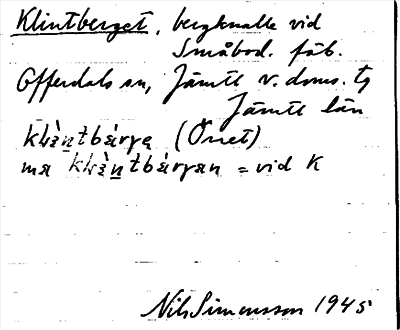 Klintberget, bergknalle vid
Småbod. fäb.
Offerdals sn, Jämtl v. doms. tg
Jämtl län
(Önet)
ma = vid K
Nils Simonsson 1945